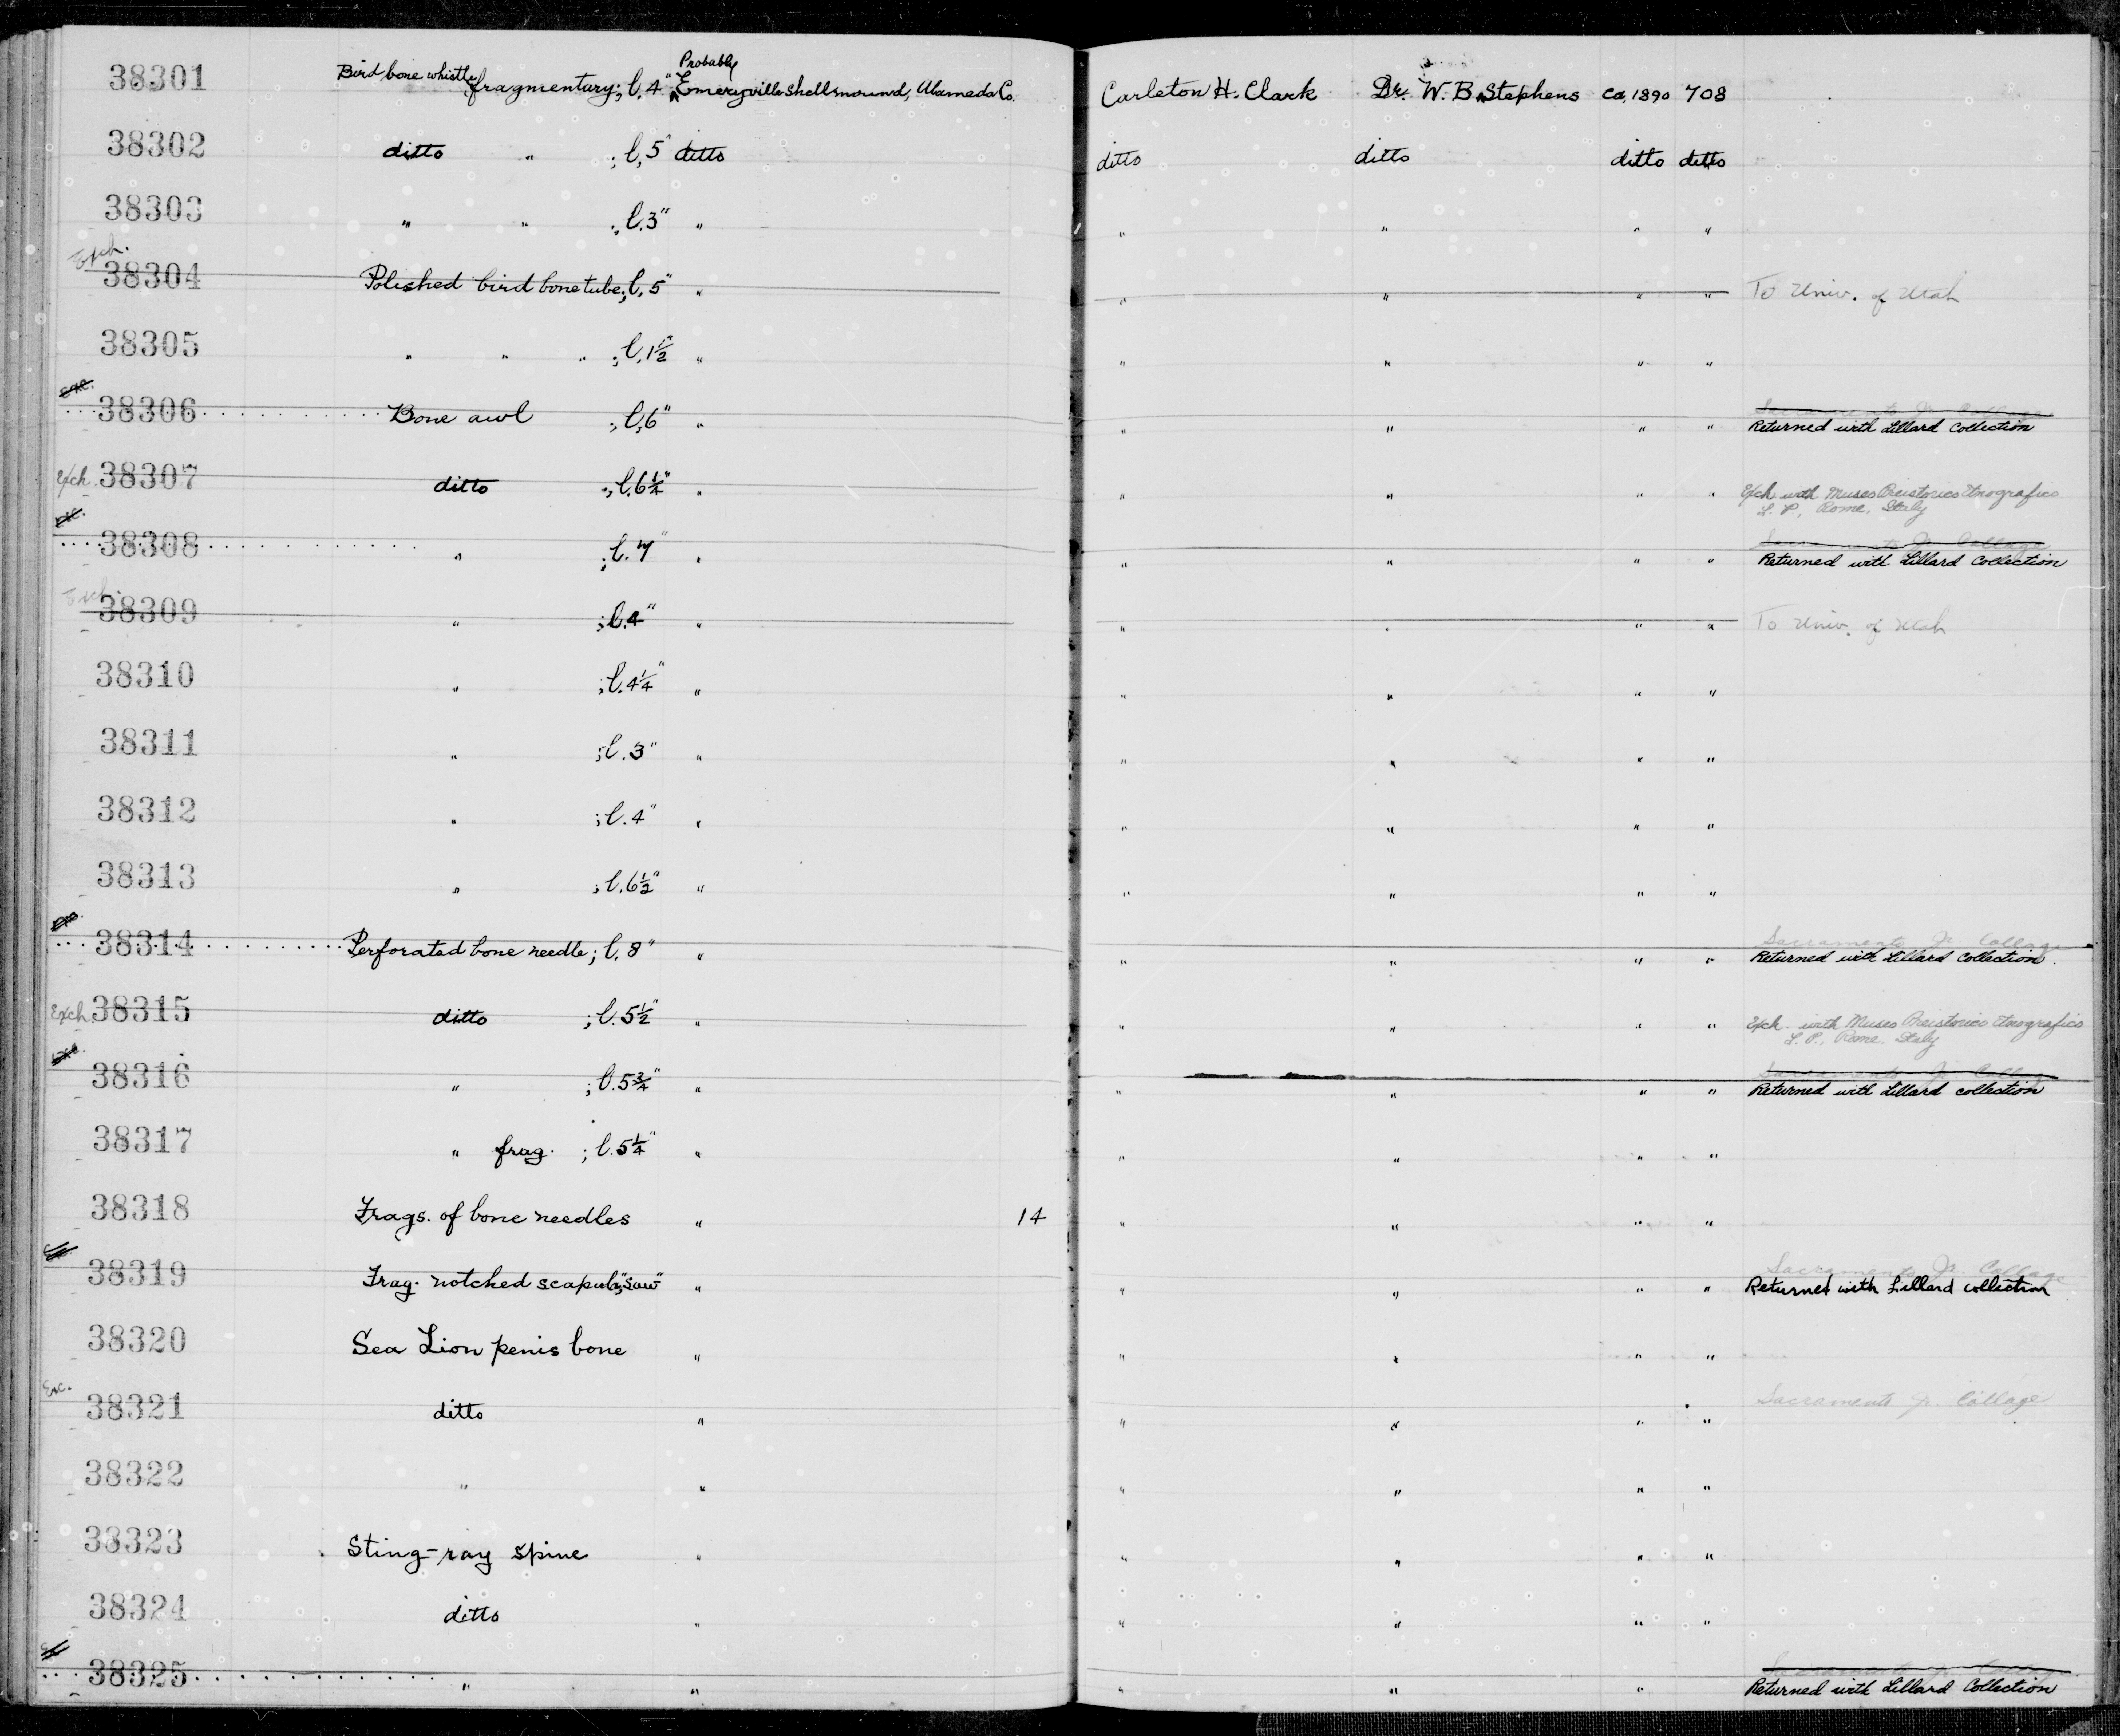 38301 Bird bone whistle, fragmentary; l. 4" Probably Emeryville shellmound, Alameda Co. Carleton H. Clark Dr. W. B. Stephens ca. 1890 708
38302 ditto " ; l. 5" ditto ditto ditto ditto ditto
38303 " " ; l. 3" " " " " "
Exch. 38304 Polished bird bone tube; l. 5" " " " " " To Univ. of Utah
38305 " " " ; l. 1 1/2" " " " " "
exc. 38306 Bone awl ; l. 6" " " " " " Sacramento Jr. College
Returned with Lillard Collection
Exch. 38307 ditto ; l. 6 1/4" " " " " " Exch. with Museo Preistorico Etnografico
L. P., Rome, Italy
exc. 38308 " ; l. 7" " " " " " Sacramento Jr. College
Returned with Lillard Collection
Exch. 38309 " ; l. 4" " " " " " To Univ. of Utah
38310 " ; l. 4 1/4" " " " " "
38311 " ; l. 3" " " " " "
38312 " ; l. 4" " " " " "
38313 " ; l. 6 1/2" " " " " "
38314 Perforated bone needle; l. 8" " " " " " Sacramento Jr. College
Returned with Lillard Collection.
Exch. 38315 ditto ; l. 5 1/2" " " " " " Exch. with Museo Preistorico Etnografico
L. P., Rome, Italy
38316 " ; l. 5 3/4" " " " " " Sacramento Jr. College
Returned with Lillard collection
38317 " frag. ; l. 5 1/4" " " " " "
38318 Frags. of bone needles " 14 " " " "
38319 Frag. notched scapula, "saw" " " " " " Sacramento Jr. College
Returned with Lillard collection
38320 Sea Lion penis bone " " " " "
Exc. 38321 ditto " " " " " Sacramento Jr. College
38322 " " " " " "
38323 Sting-ray spine " " " " "
38324 ditto " " " " "
38325 " " " " " Sacramento Jr. College
Returned with Lillard Collection